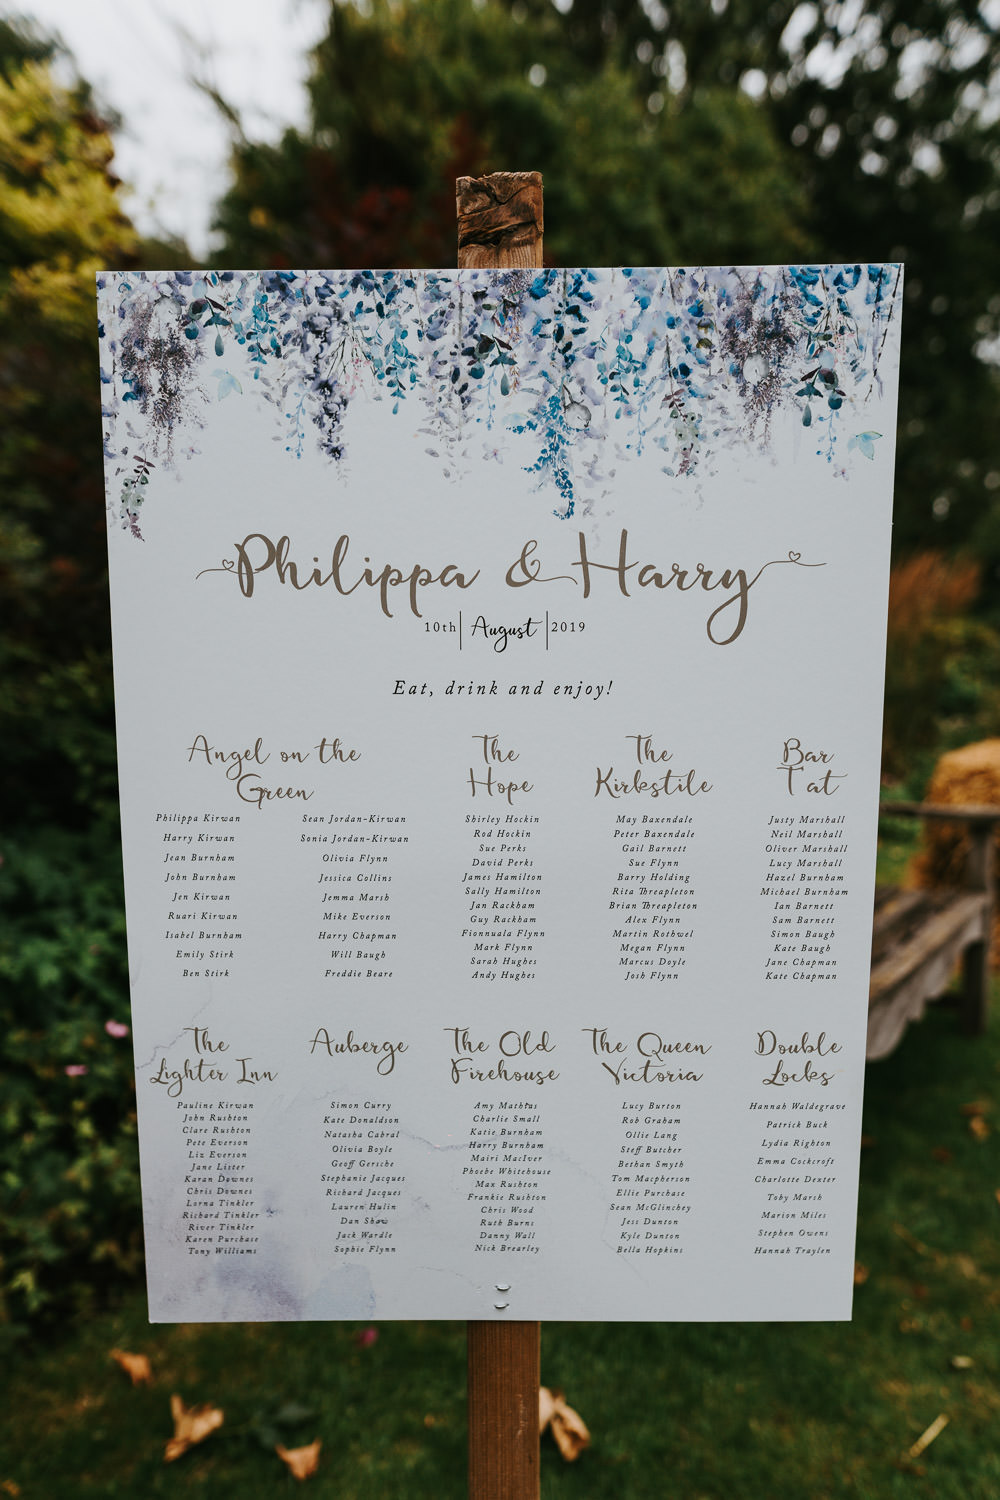 Philippa & Harry
10th August 2019
Eat, drink and enjoy!
Angel on the
Green
Philippa Kirwan
Harry Kirwan
Jean Burnham
John Burnham
Jen Kirwan
Ruari Kirwan
Isabel Burnham
Emily Stirk
Ben Stirk
Sean Jordan-Kirwan
Sonia Jordan-Kirwan
Olivia Flynn
Jessica Collins
Jemma Marsh
Mike Everson
Harry Chapman
Will Baugh
Freddie Beare
The
Hope
Shirley Hockin
Rod Hockin
Sue Perks
David Perks
James Hamilton
Sally Hamilton
Jan Rackham
Guy Rackham
Fionnuala Flynn
Mark Flynn
Sarah Hughes
Andy Hughes
The
Kirkstile
May Baxendale
Peter Baxendale
Gail Barnett
Sue Flynn
Barry Holding
Rita Threapleton
Brian Threapleton
Alex Flynn
Martin Rothwel
Megan Flynn
Marcus Doyle
Josh Flynn
Bar
Tat
Justy Marshall
Neil Marshall
Oliver Marshall
Lucy Marshall
Hazel Burnham
Michael Burnham
Ian Barnett
Sam Barnett
Simon Baugh
Kate Baugh
Jane Chapman
Kate Chapman
The
Lighter Inn
Pauline Kirwan
John Rushton
Clare Rushton
Pete Everson
Liz Everson
Jane Lister
Karan Downes
Chris Downes
Lorna Tinkler
Richard Tinkler
River Tinkler
Karen Purchase
Tony Williams
Auberge
Simon Curry
Kate Donaldson
Natasha Cabral
Olivia Boyle
Geoff Gersche
Stephanie Jacques
Richard Jacques
Lauren Hulin
Dan Shaw
Jack Wardle
Sophie Flynn
The Old
Firehouse
Amy Mathias
Charlie Small
Katie Burnham
Harry Burnham
Mairi MacIver
Phoebe Whitehouse
Max Rushton
Frankie Rushton
Chris Wood
Ruth Burns
Danny Wall
Nick Brearley
The Queen
Victoria
Lucy Burton
Rob Graham
Ollie Lang
Steff Butcher
Bethan Smyth
Tom Macpherson
Ellie Purchase
Sean McGlinchey
Jess Dunton
Kyle Dunton
Bella Hopkins
Double
Locks
Hannah Waldegrave
Patrick Buck
Lydia Righton
Emma Cockcroft
Charlotte Dexter
Toby Marsh
Marion Miles
Stephen Owens
Hannah Traylen